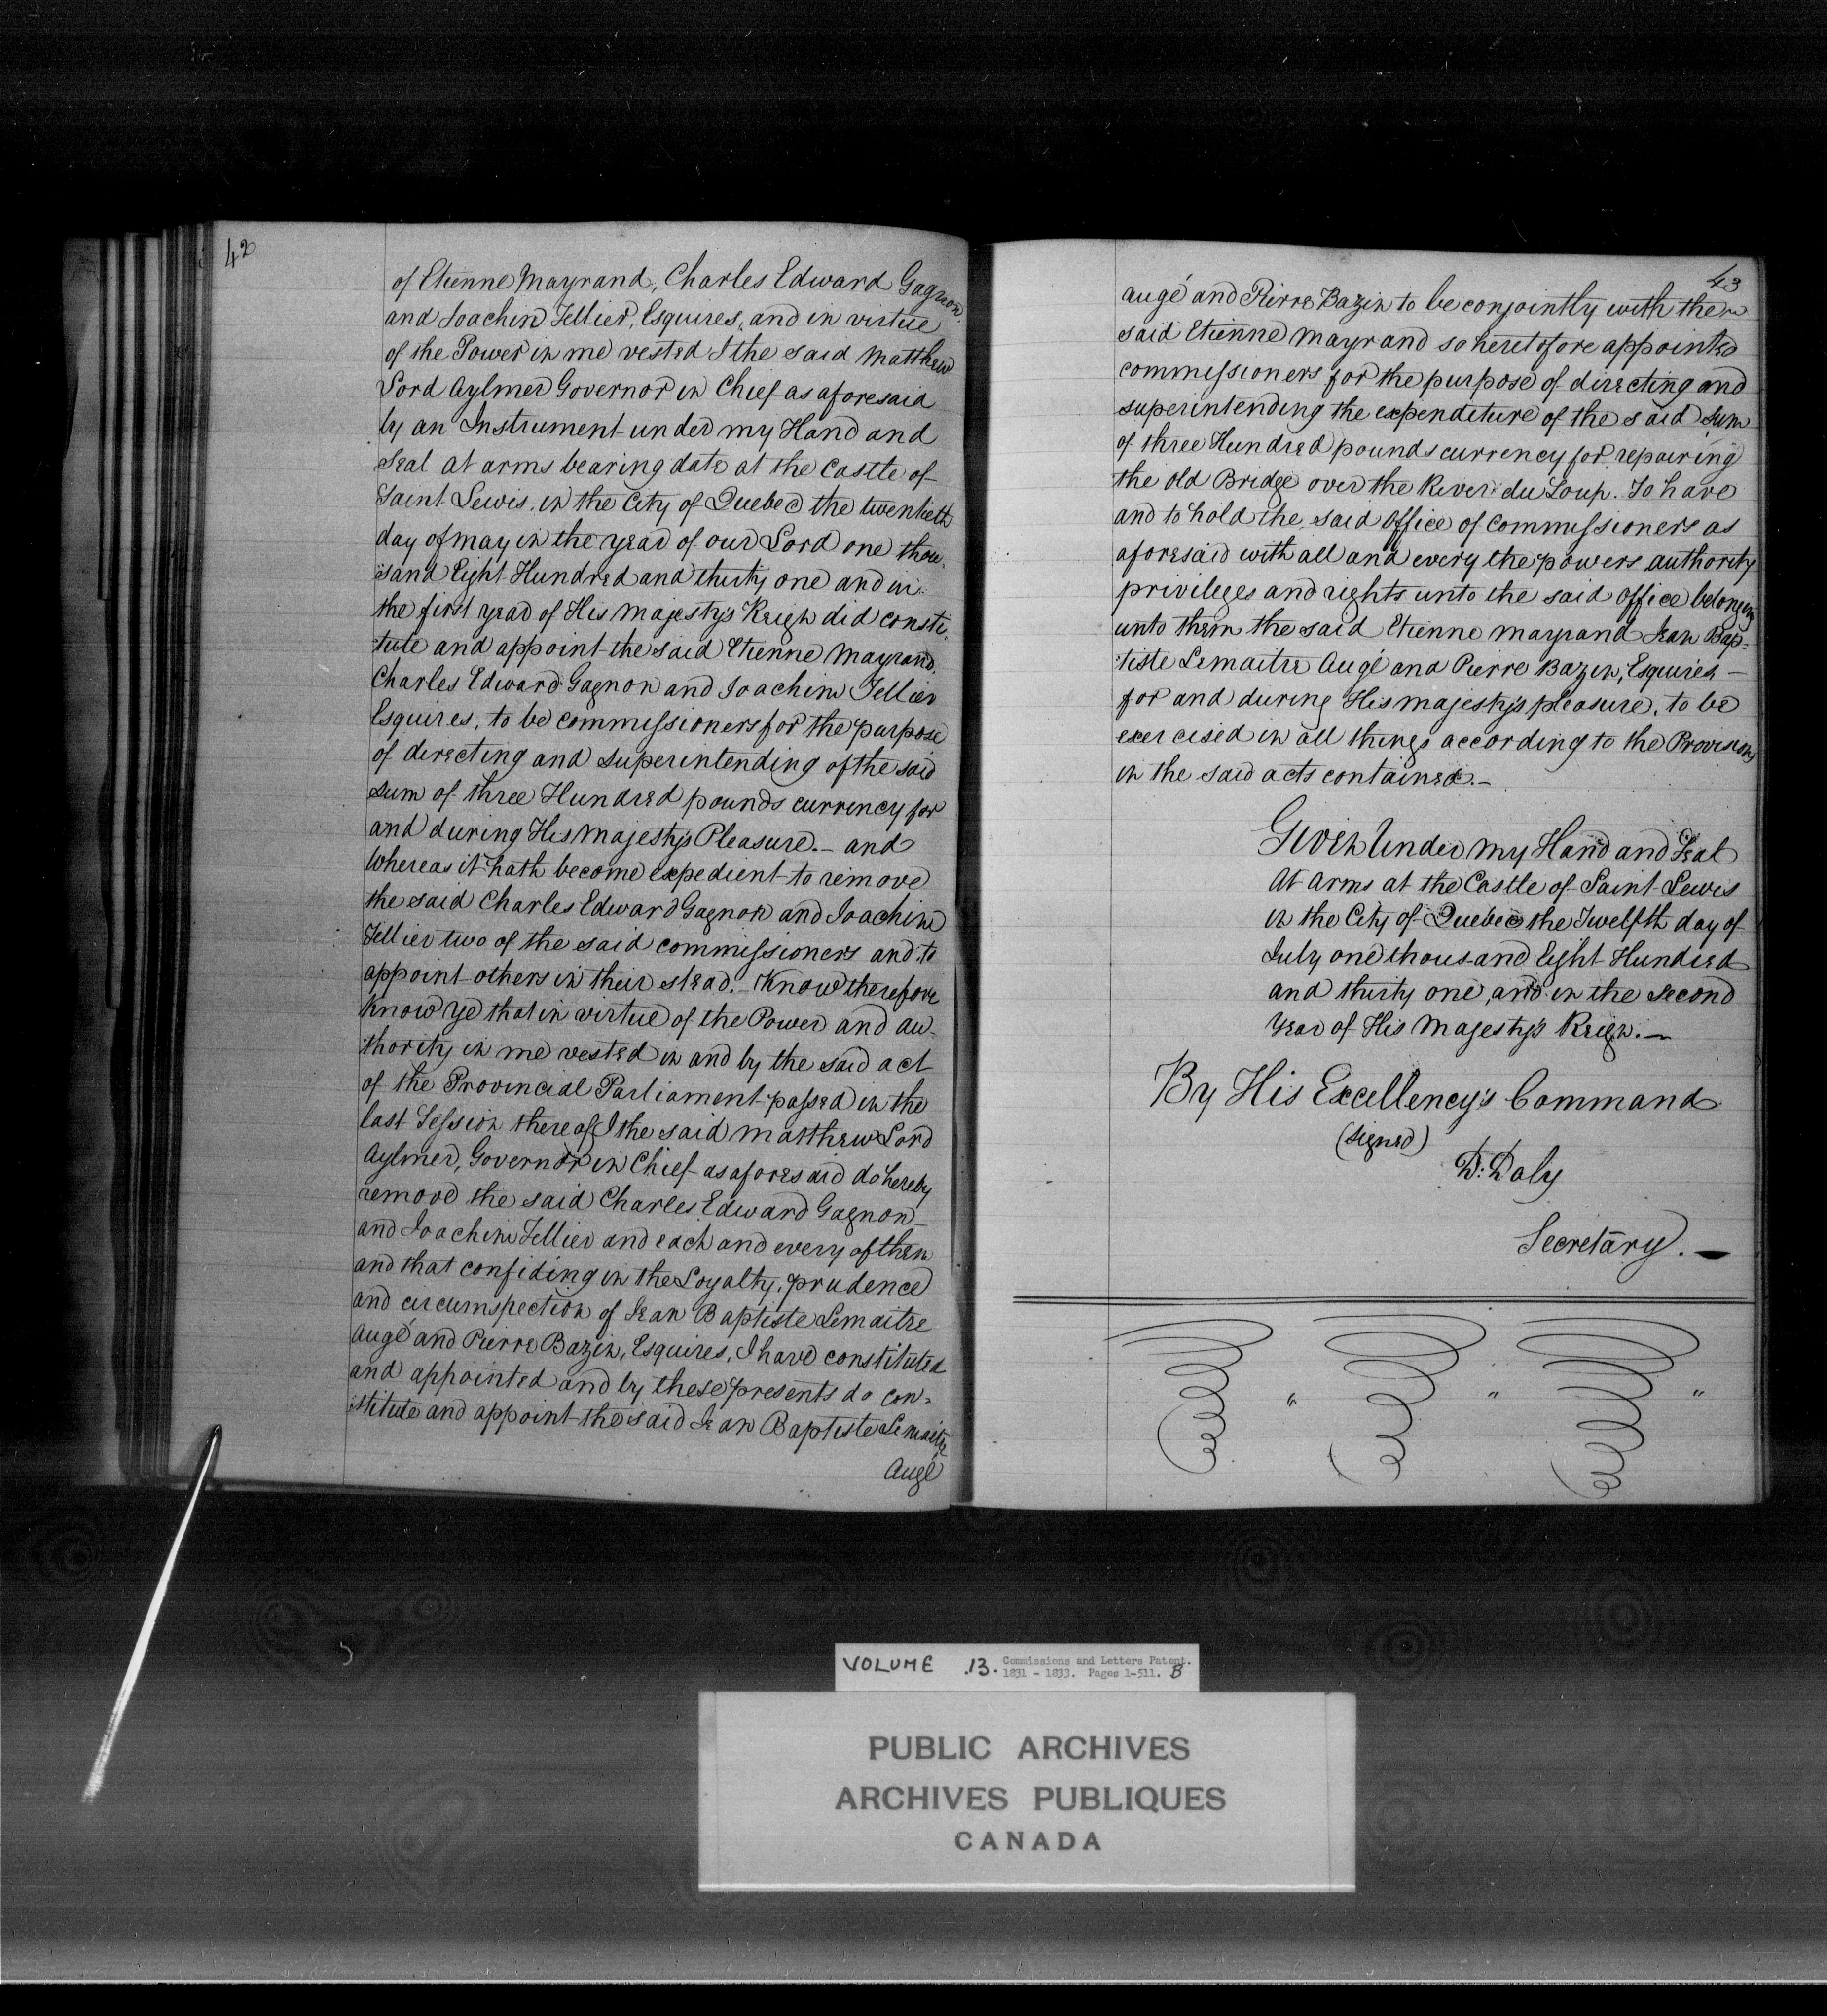 42
of Etienne Mayrand, Charles Edward Gagnon.
and Joachin Tellier, Esquires, and in virtue
of the Power in me vested I the said Matthew
Lord Aylmer Governor in Chief as aforesaid
by an Instrument under my Hand and
Seal at arms bearing date at the Castle of
Saint Lewis, in the City of Quebec the twentieth
day of may in the year of our Lord one thou-
sand Eight Hundred and thirty one and in
the first year of His Majesty's Reign did consti-
tute and appoint the said Etienne Mayrand,
Charles Edward Gagnon and Joachim Tellier
Esquires, to be commissioners for the purpose
of directing and superintending of the said
sum of three Hundred pounds currency for
and during His Majesty's Pleasure.- and
Whereas it hath become expedient to remove
the said Charles Edward Gagnon and Joachim
Tellier two of the said commissioners and to
appoint others in their stead.- Know therefore
Know ye that in virtue of the Power and au-
thority in me vested in and by the said act
of the Provincial Parliament passed in the
last Session thereof I the said Matthew Lord
Aylmer, Governor in Chief as aforesaid do hereby
remove the said Charles Edward Gagnon-
and Joachim Tellier and each and every of them
and that confiding in the Loyalty, prudence
and circumspection of Jean Baptiste Lemaitre
Augé and Pierre Bazin, Esquires, I have constituted
and appointed and by these presents do con-
stitute and appoint the said Jean Baptiste Lemaitre
Augé
43
augé and Pierre Bazin to be conjointly with the
said Etienne Mayrand so heretofore appointed
commissioners for the purpose of directing and
superintending the expenditure of the said sum
of three Hundred pounds currency for repairing
the old Bridge over the River du Loup. To have
and to hold the said office of commissioners as
aforesaid with all and every the powers authority
privileges and rights unto the said office belonging
unto them the said Etienne Mayrand Jean Bap-
tiste Lemaitre Augé and Pierre Bazin, Esquires -
for and during His majesty's pleasure, to be
exercised in all things according to the Provisions
in the said acts contained.-
Given Under my Hand and Seal
At Arms at the Castle of Saint Lewis
in the City of Quebec the Twelfth day of
July one thousand Eight Hundred
and thirty one, and in the second
year of His Majesty's Reign.-
By His Excellency's Command
(signed)
D: Daly
Secretary. -
VOLUME .13. Commissions and Letters Patent.
1831 - 1833. Pages 1-511. B
PUBLIC ARCHIVES
ARCHIVES PUBLIQUES
CANADA